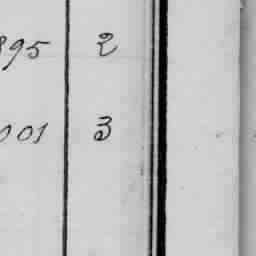 895 2
001 3